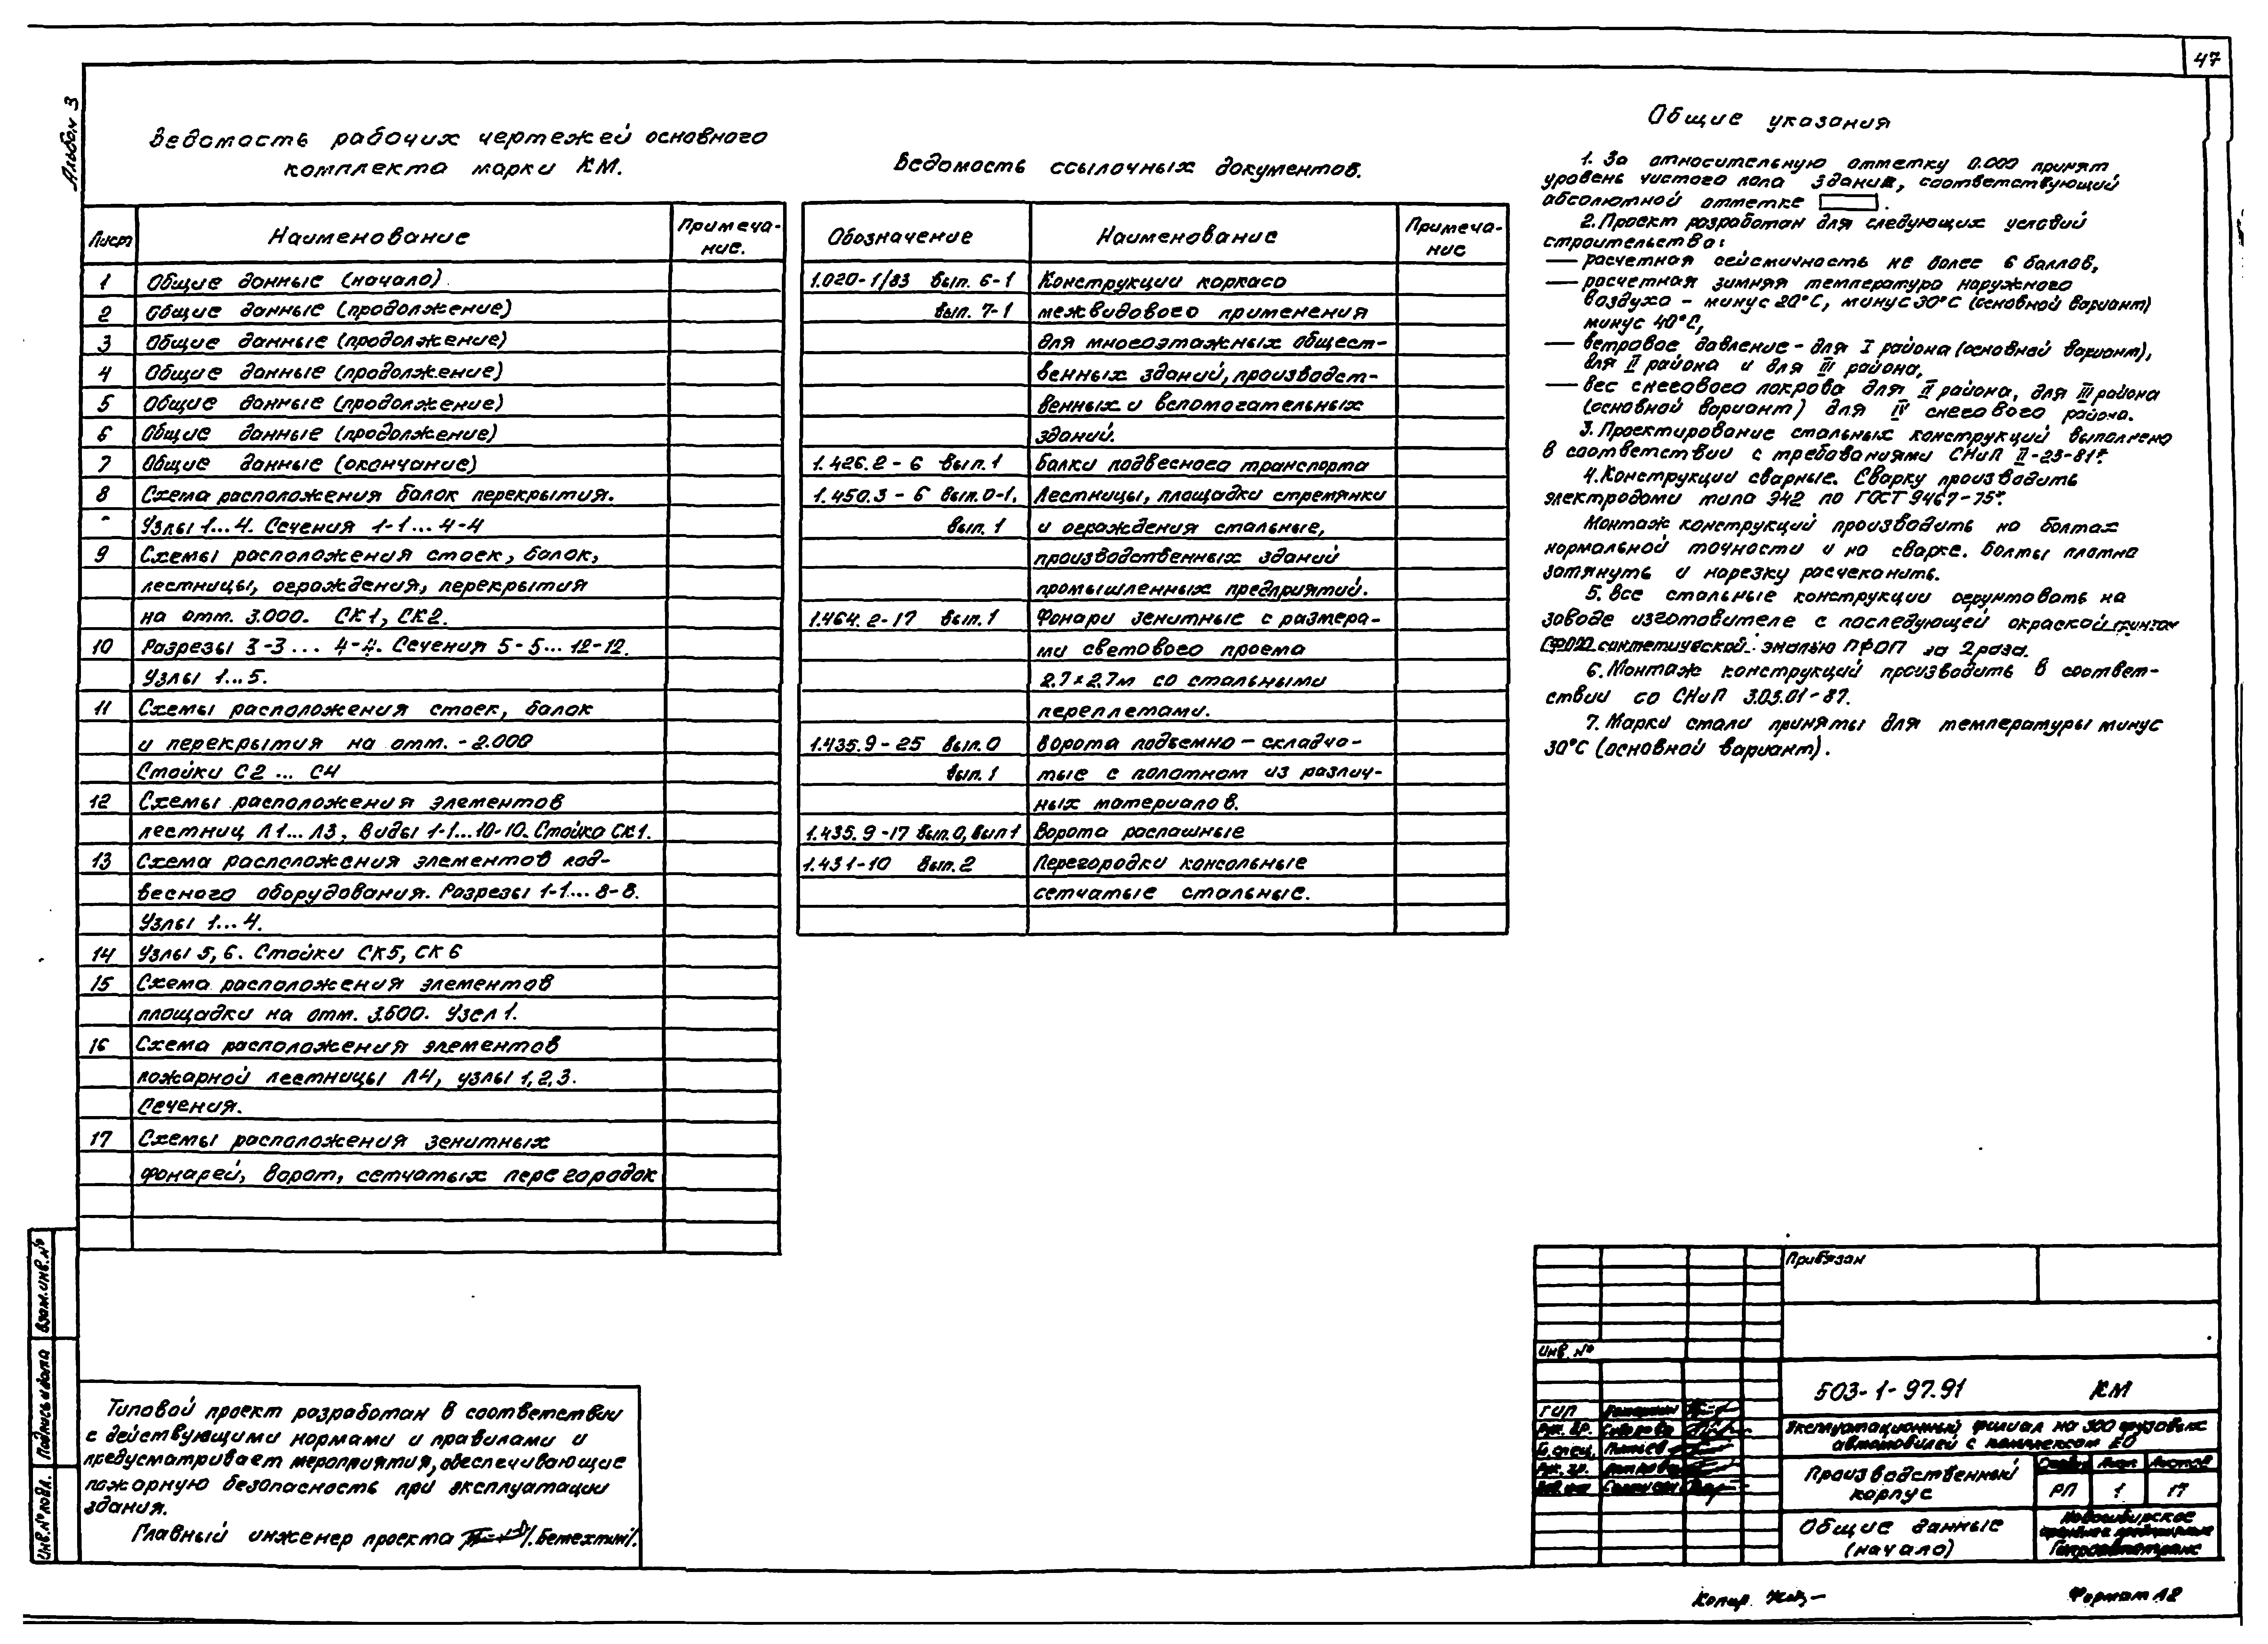 47
Альбом 3
Ведомость рабочих чертежей основного
комплекта марки КМ.
Лист
Наименование
Примеча-
ние.
1 Общие данные (начало)
2 Общие данные (продолжение)
3 Общие данные (продолжение)
4 Общие данные (продолжение)
5 Общие данные (продолжение)
6 Общие данные (продолжение)
7 Общие данные (окончание)
8 Схема расположения балок перекрытия.
Узлы 1...4. Сечения 1-1...4-4
9 Схемы расположения стоек, балок,
лестницы, ограждения, перекрытия
на отм. 3.000. СК1, СК2.
10 Разрезы 3-3... 4-4. Сечения 5-5...12-12.
Узлы 1...5.
11 Схемы расположения стоек, балок
и перекрытия на отм. -2.000
Стойки С2 ... С4
12 Схемы расположения элементов
лестниц Л1...Л3, Виды 1-1...10-10. Стойка СК1.
13 Схема расположения элементов под-
весного оборудования. Разрезы 1-1...8-8.
Узлы 1...4.
14 Узлы 5, 6. Стойки СК5, СК6
15 Схема расположения элементов
площадки на отм. 3.600. Узел 1.
16 Схема расположения элементов
пожарной лестницы Л4, узлы 1,2,3.
Сечения.
17 Схемы расположения зенитных
фонарей, ворот, сетчатых перегородок
Ведомость ссылочных документов.
Обозначение
Наименование
Примеча-
ние
1.020-1/83 вып. 6-1 Конструкции каркаса
вып. 7-1 межвидового применения
для многоэтажных общест-
венных зданий, производст-
венных и вспомогательных
зданий.
1.426.2-6 вып.1 Балки подвесного транспорта
1.450.3-6 вып.0-1, Лестницы, площадки стремянки
вып. 1 и ограждения стальные,
производственных зданий
промышленных предприятий.
1.464.2-17 вып.1 Фонари зенитные с размера-
ми светового проема
2.7×2.7м со стальными
переплетами.
1.435.9-25 вып.0 Ворота подъемно-складча-
вып.1 тые с полотном из различ-
ных материалов.
1.435.9-17 вып.0, вып1 Ворота распашные
1.431-10 вып.2 Перегородки консольные
сетчатые стальные.
Общие указания
1. За относительную отметку 0.000 принят
уровень чистого пола здания, соответствующий
абсолютной отметке .
2. Проект разработан для следующих условий
строительства:
— расчетная сейсмичность не более 6 баллов,
— расчетная зимняя температура наружного
воздуха - минус 20°С, минус 30°С (основной вариант)
минус 40°С,
— ветровое давление - для I района (основной вариант),
для II района и для III района,
— вес снегового покрова для II района, для III района
(основной вариант) для IV снегового района.
3. Проектирование стальных конструкций выполнено
в соответствии с требованиями СНиП II-23-81*.
4. Конструкции сварные. Сварку производить
электродами типа Э42 по ГОСТ 9467-75*.
Монтаж конструкций производить на болтах
нормальной точности и на сварке. Болты плотно
затянуть и нарезку расчеканить.
5. Все стальные конструкции огрунтовать на
заводе изготовителе с последующей окраской
синтетической эмалью ПФОП за 2 раза.
6. Монтаж конструкций производить в соответ-
ствии со СНиП 3.03.01-87.
7. Марки стали приняты для температуры минус
30°С (основной вариант).
Типовой проект разработан в соответствии
с действующими нормами и правилами и
предусматривает мероприятия, обеспечивающие
пожарную безопасность при эксплуатации
здания.
Главный инженер проекта /.Бетехтин/.
Взам.инв.№
Подпись и дата
Инв.№ подл.
Привязан
Инв. №
503-1-97.91 КМ
ГИП
Рук. бр.
Гл. спец.
Рук. гр.
Эксплуатационный филиал на 300 грузовых
автомобилей с комплексом ЕО
Производственный
корпус
Стадия Лист Листов
РП 1 17
Общие данные
(начало)
Новосибирское
Гипроавтотранс
Копир.
Формат А2